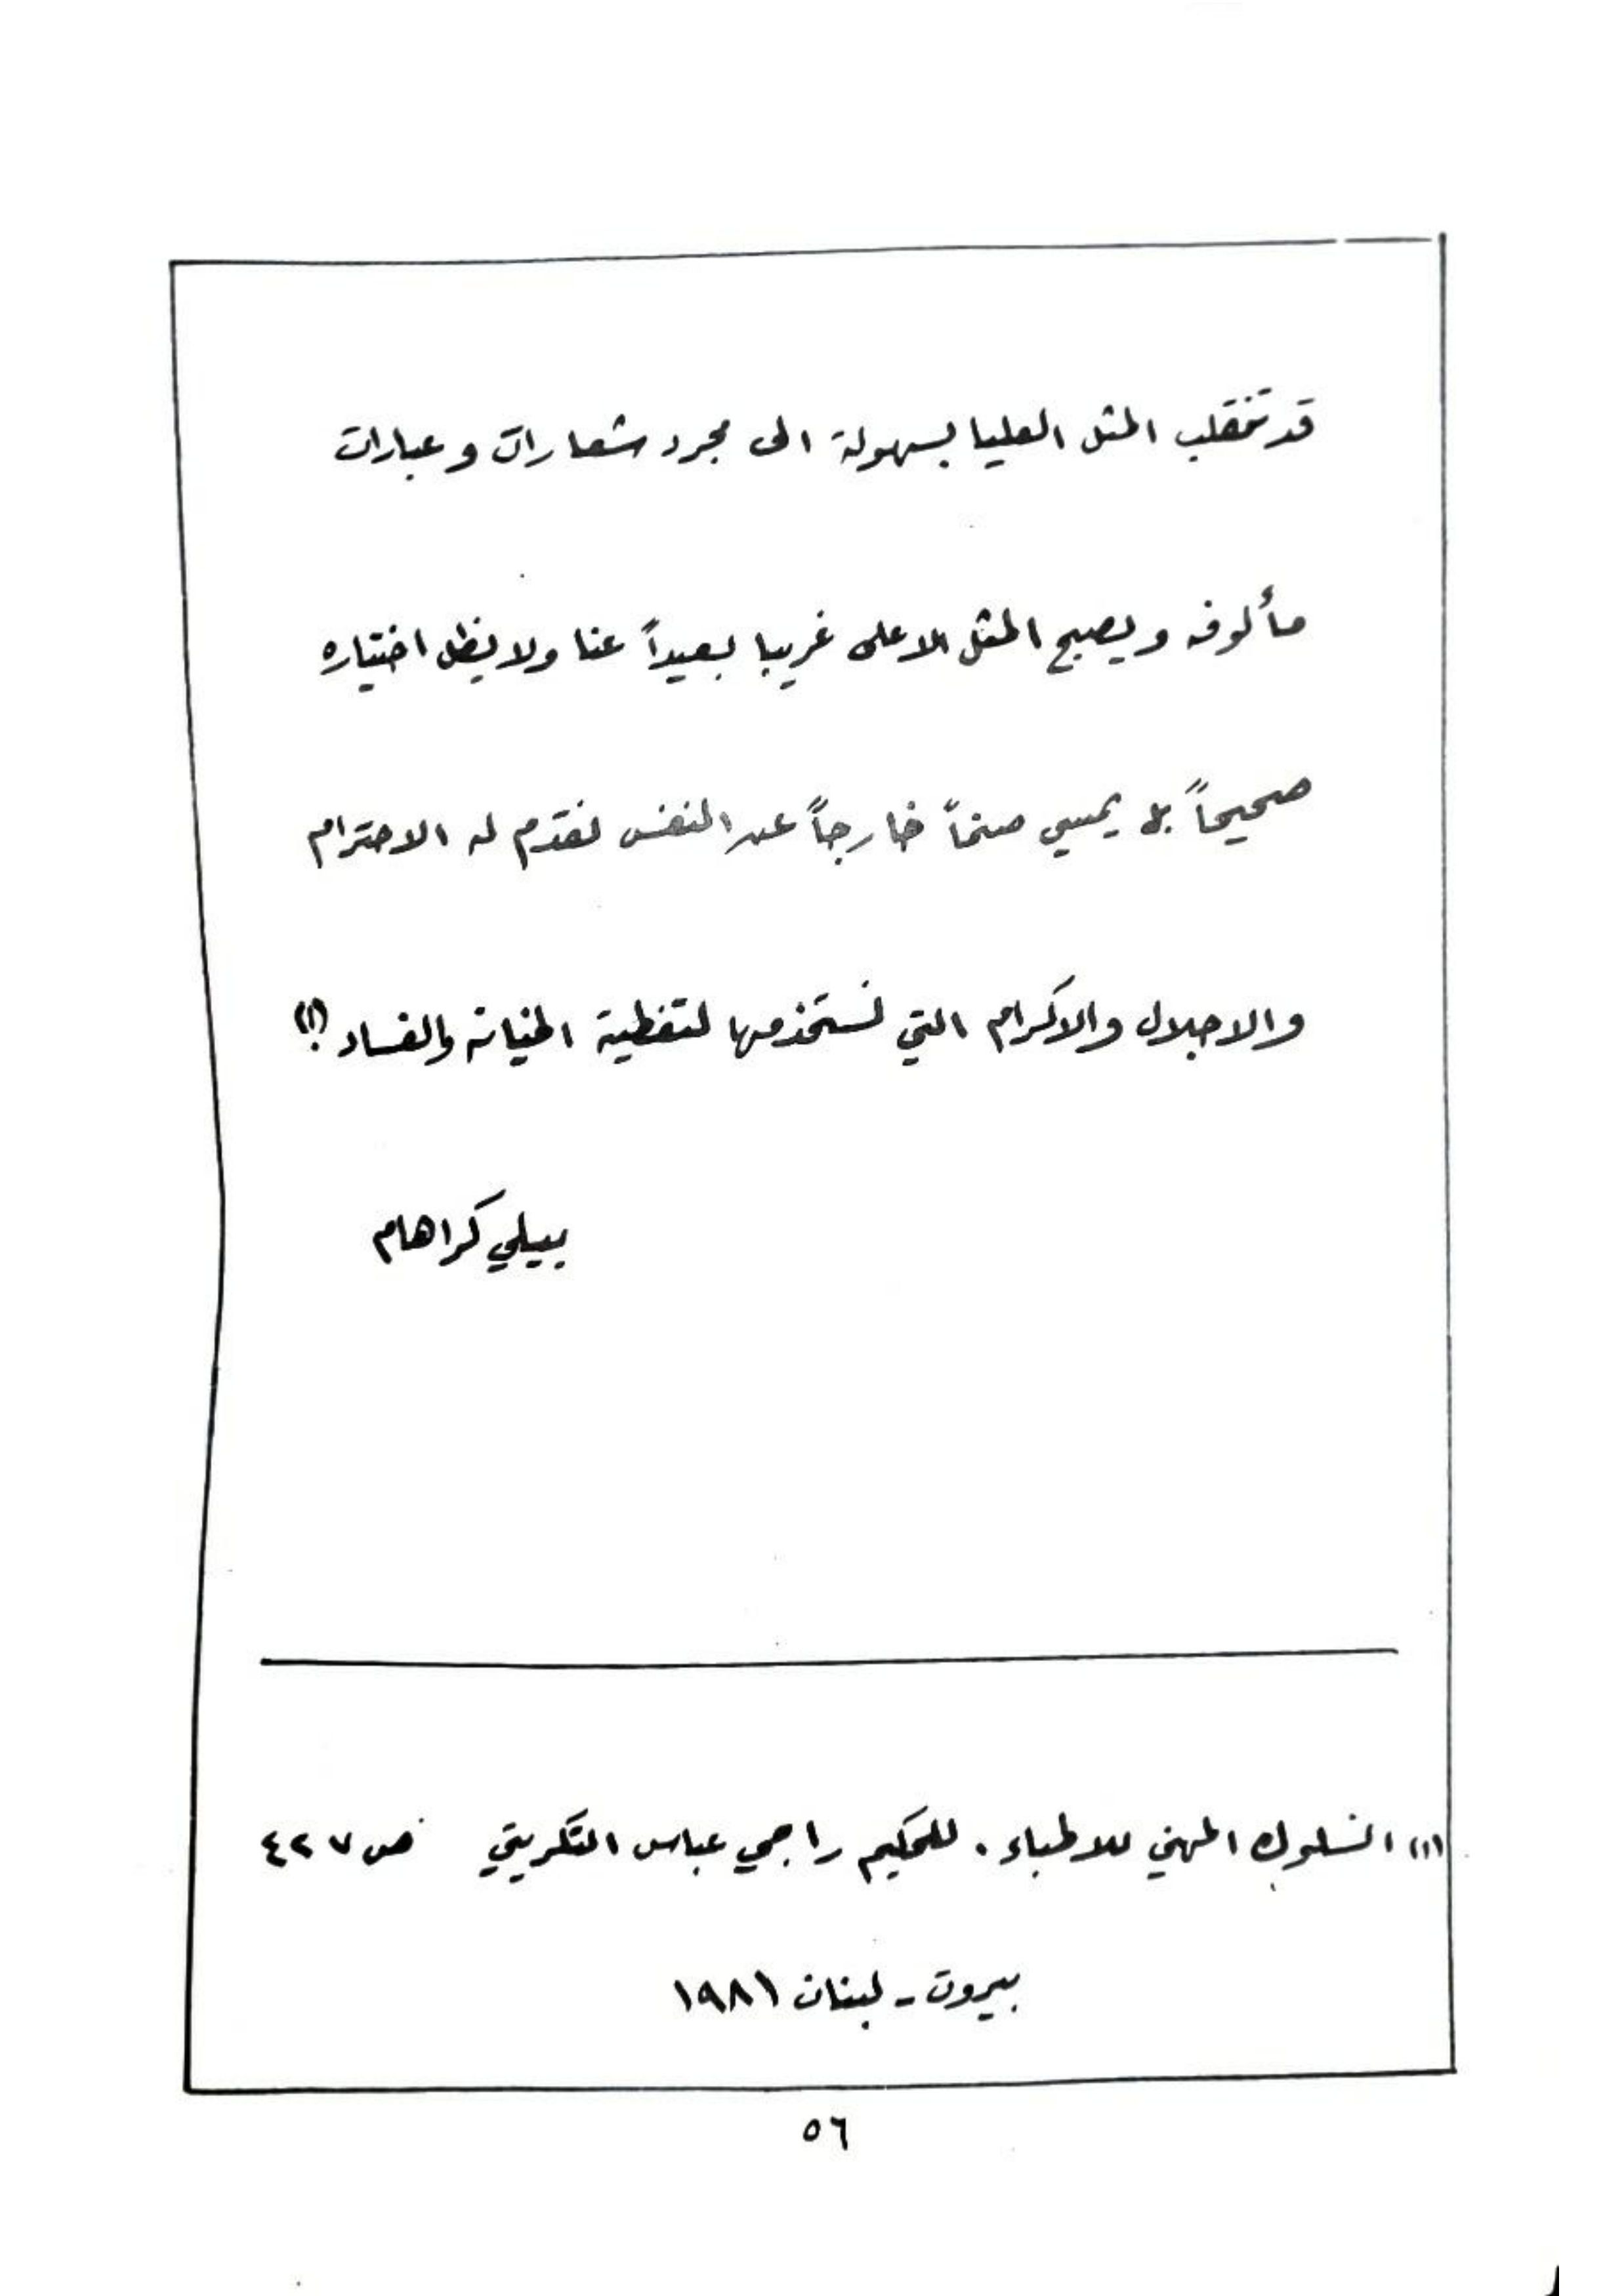 قد تنقلب المثل العليا بسهولة الى مجرد شعارات وعبارات
مألوفه ويصبح المثل الاعلى غريبا بعيداً عنا ولا يظل اختياره
صحيحاً بل يمسي صنماً خارجاً عن النفس نقدم له الاحترام
والاجلال والاكرام التي نستخدمها لتغطية الخيانة والفساد (١)
بيلي كراهام
(١) السلوك المهني للاطباء . للحكيم راجي عباس التكريتي ص ٤٢٧
بيروت - لبنان ١٩٨١
٥٦